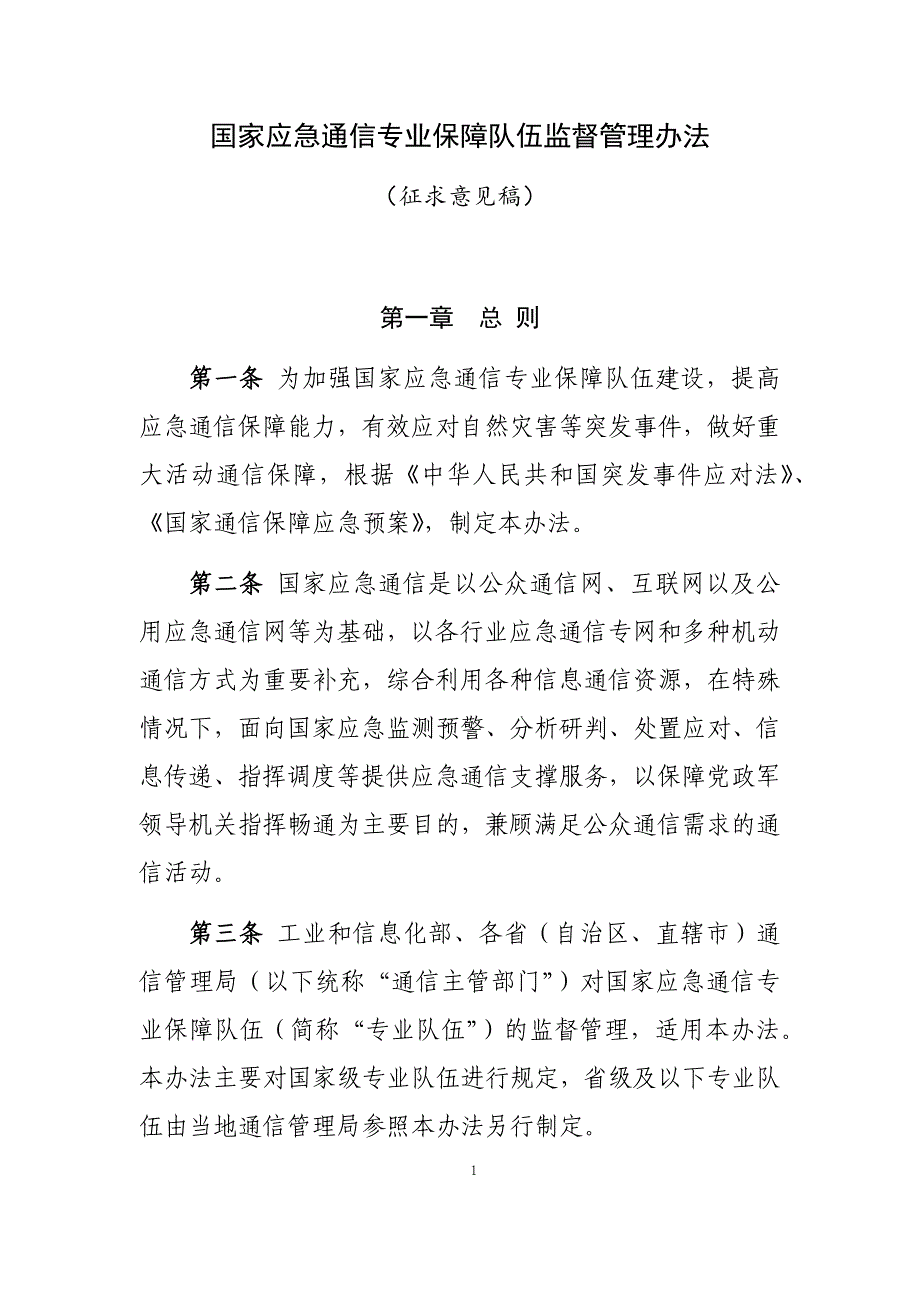 国家应急通信专业保障队伍监督管理办法
（征求意见稿）
第一章 总 则
第一条 为加强国家应急通信专业保障队伍建设，提高
应急通信保障能力，有效应对自然灾害等突发事件，做好重
大活动通信保障，根据《中华人民共和国突发事件应对法》、
《国家通信保障应急预案》，制定本办法。
第二条 国家应急通信是以公众通信网、互联网以及公
用应急通信网等为基础，以各行业应急通信专网和多种机动
通信方式为重要补充，综合利用各种信息通信资源，在特殊
情况下，面向国家应急监测预警、分析研判、处置应对、信
息传递、指挥调度等提供应急通信支撑服务，以保障党政军
领导机关指挥畅通为主要目的，兼顾满足公众通信需求的通
信活动。
第三条 工业和信息化部、各省（自治区、直辖市）通
信管理局（以下统称“通信主管部门”）对国家应急通信专
业保障队伍（简称“专业队伍”）的监督管理，适用本办法。
本办法主要对国家级专业队伍进行规定，省级及以下专业队
伍由当地通信管理局参照本办法另行制定。
1